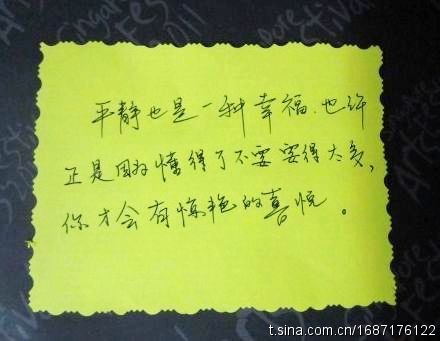 平静也是一种幸福.也许
正是因为懂得了不要要得太多,
你才会有惊艳的喜悦。
t.sina.com.cn/1687176122